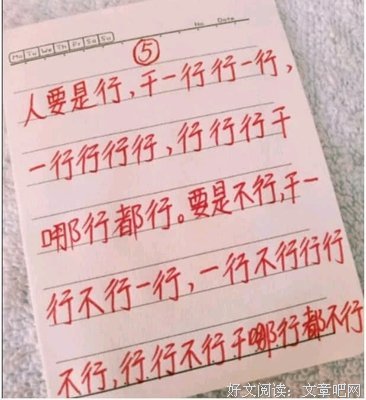 Mo Tu We Th Fr Sa Su
No. Date
⑤
人要是行,干一行行一行,
一行行行行,行行行干
哪行都行。要是不行,干一
行不行一行,一行不行行行
不行,行行不行干哪行都不行
好文阅读:文章吧网